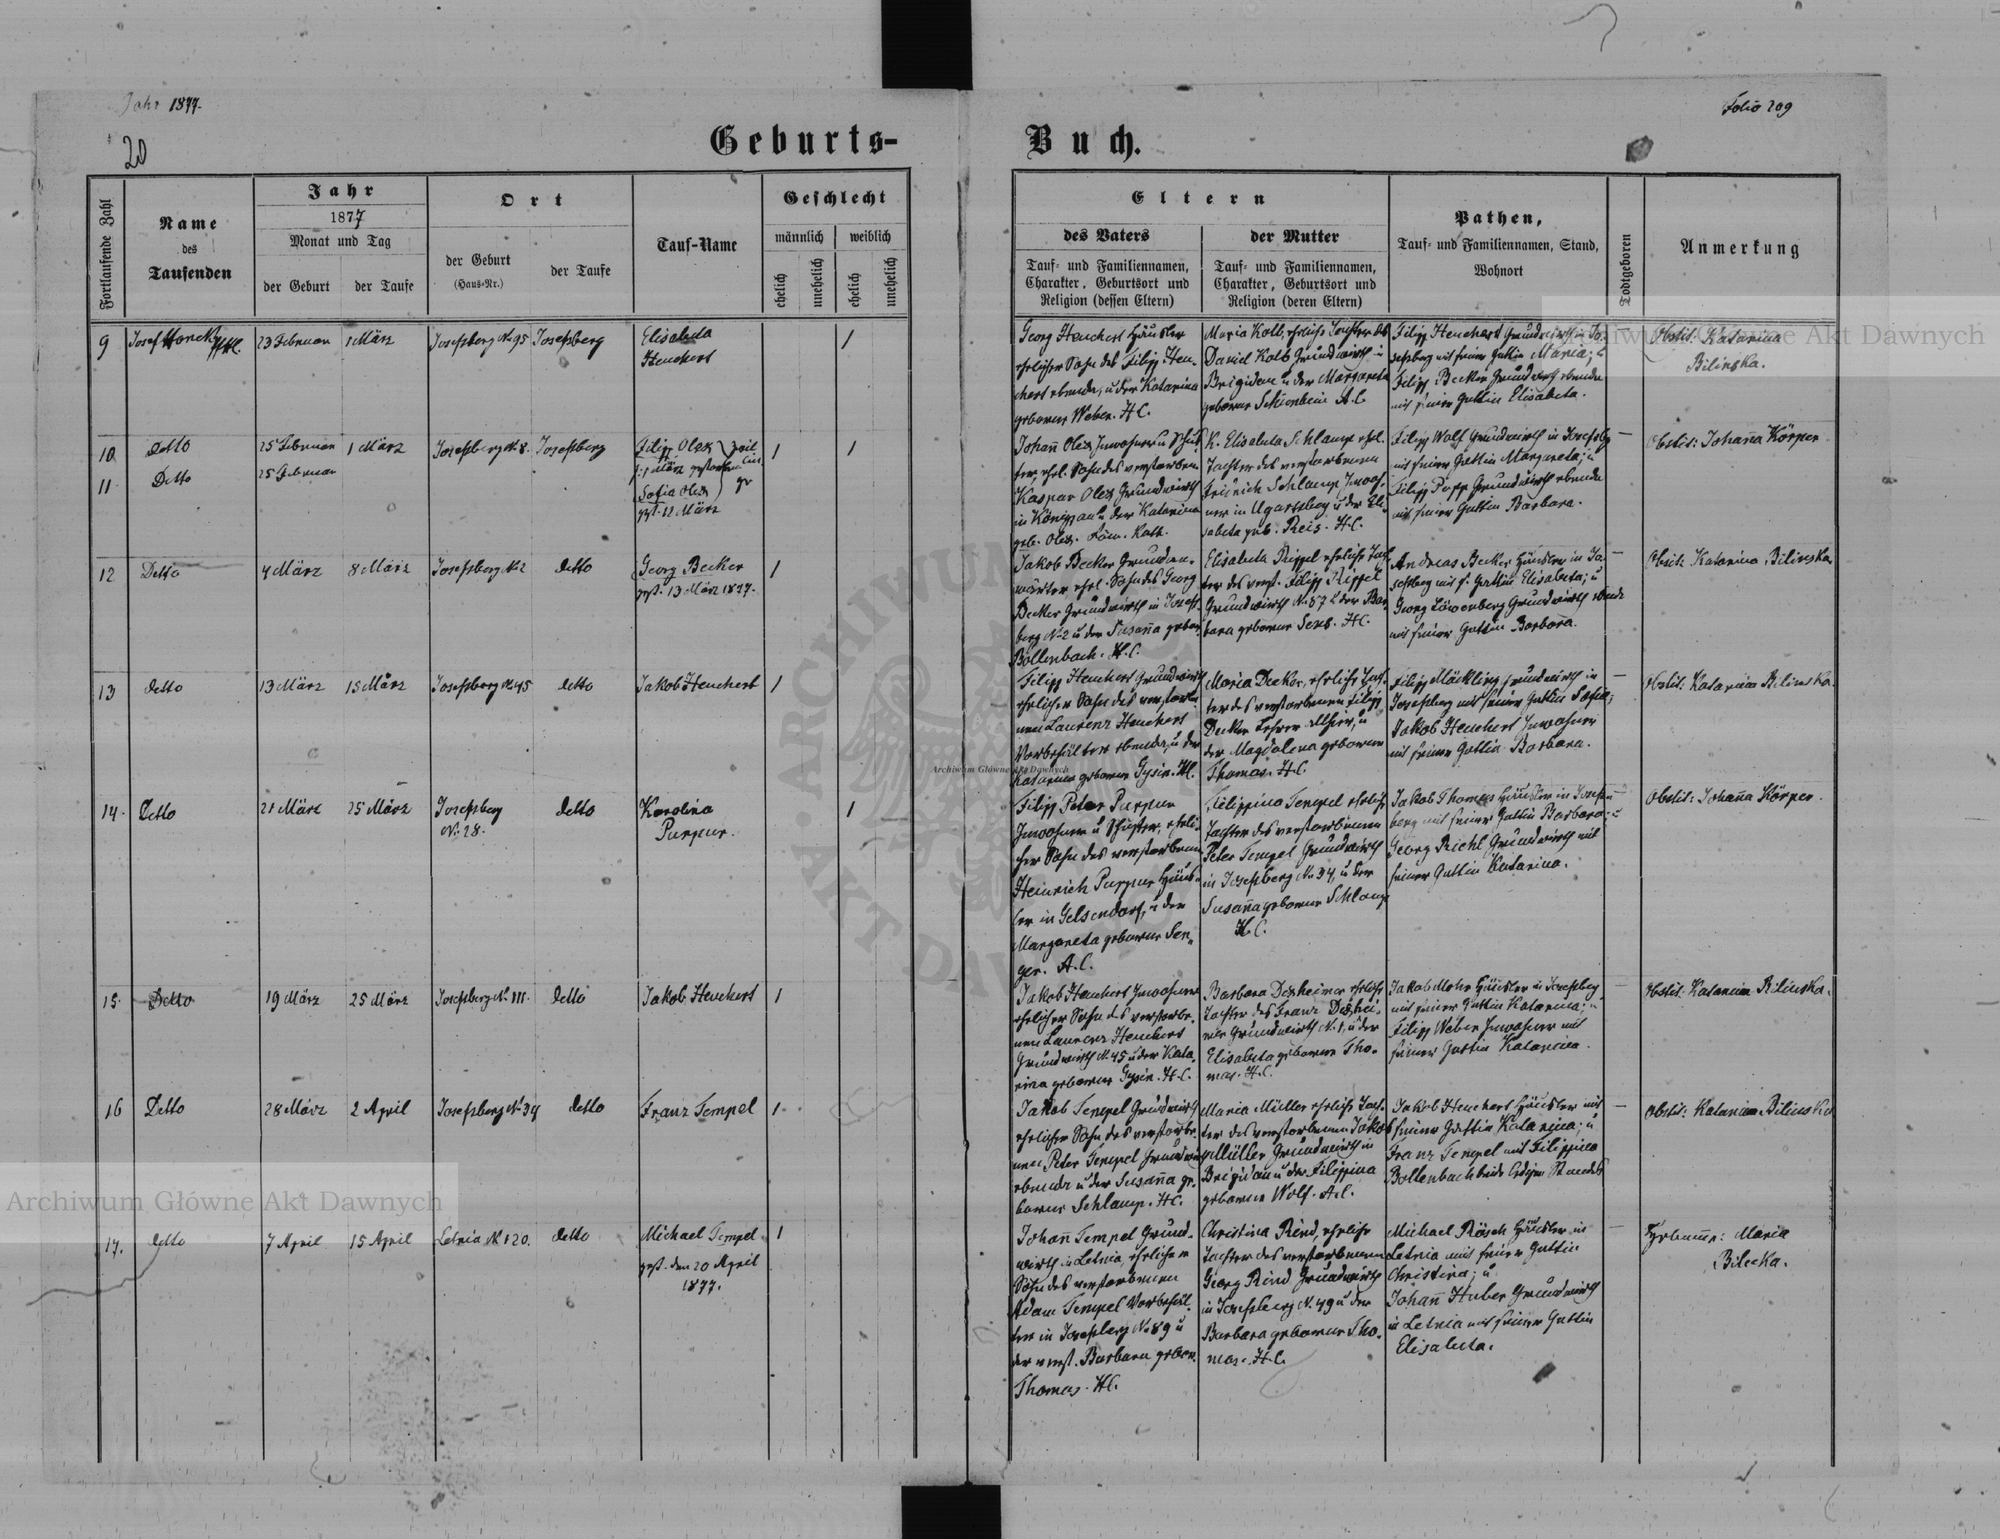 Jahr 1877.
Folio 209
20
Geburts-
Buch.
Fortlaufende Zahl
Name
des
Taufenden
Jahr
1877
Monat und Tag
der Geburt
der Taufe
Ort
der Geburt
(Haus-Nr.)
der Taufe
Tauf-Name
Geschlecht
männlich
weiblich
ehelich
unehelich
ehelich
unehelich
Eltern
des Vaters
Tauf- und Familiennamen,
Charakter, Geburtsort und
Religion (dessen Eltern)
der Mutter
Tauf- und Familiennamen,
Charakter, Geburtsort und
Religion (deren Eltern)
Pathen,
Tauf- und Familiennamen, Stand,
Wohnort
Todtgeboren
Anmerkung
9
Josef
23 Februar
1 März
Josefsberg No 95
Josefsberg
Elisabeta
Heuchert
1
Georg Heuchert Häusler
ehelicher Sohn des Filipp Heu-
chert ebenda, u der Katarina
geborne Weber. H.C.
Maria Kolb, eheliche Tochter des
Daniel Kolb Grundwirth in
Brigidau u der Margareta
geborne Schienbein A.C.
Filipp Heuchert Grundwirth in Jo-
sefsberg mit seiner Gattin Maria; u
Filipp Becker Grundwirth ebenda
mit seiner Gattin Elisabeta.
Obstit. Katarina
Bilinska.
10
Detto
25 Februar
1 März
Josefsberg No 8.
Josefsberg
Filipp Olex
1 März gestorben
1
1
11
Detto
25 Februar
Sofia Olex
gest. 12 März
Johann Olex Inwohner u Schus-
ter, ehel. Sohn des verstorbenen
Kaspar Olex Grundwirth
in Königsau u der Katarina
geb. Olex. Röm. Kath.
K. Elisabeta Schlamp ehel.
Tochter des verstorbenen
Fridrich Schlamp Inwoh-
ner in Ugartsberg u der Eli-
sabeta geb. Reis. H.C.
Filipp Wolf Grundwirth in Josefsbg
mit seiner Gattin Margareta; u
Filipp Popp Grundwirth ebenda
mit seiner Gattin Barbara.
Obstit: Johanna Körper
12
Detto
4 März
8 März
Josefsberg No 2
detto
Georg Becker
gest. 13 März 1877.
1
Jakob Becker Grundan-
wärter ehel. Sohn des Georg
Becker Grundwirth in Josefs-
berg No 2 u der Susanna gebor.
Bollenbach. H.C.
Elisabeta Rippel eheliche Toch-
ter des verst. Filipp Rippel
Grundwirth No 87 u der Bar-
bara geborne Senb. H.C.
Andreas Becker Häusler in Jo-
sefsberg mit s. Gattin Elisabeta; u
Georg Löwenberg Grundwirth ebenda
mit seiner Gattin Barbara.
Obstit: Katarina Bilinska
13
detto
13 März
15 März
Josefsberg No 45
detto
Jakob Heuchert
1
Filipp Heuchert Grundwirth
ehelicher Sohn des verstorbe-
nen Laurenz Heuchert
Vorbehälter ebenda, u der
Katarina geborne Gysin. H.C.
Maria Decker, eheliche Toch-
ter des verstorbenen Filipp
Decker Lehrer allhier, u
der Magdalena geborene
Thomas. H.C.
Filipp Mäckling Grundwirth in
Josefsberg mit seiner Gattin Sofia;
Jakob Heuchert Inwohner
mit seiner Gattin Barbara.
Obstit: Katarina Bilinska.
14.
Detto
21 März
25 März
Josefsberg
No. 28.
detto
Karolina
Purpur.
1
Filipp Peter Purpur
Inwohner u Schuster, eheli-
cher Sohn des verstorbenen
Heinrich Purpur Häus-
ler in Gelsendorf, u der
Margareta geborne Sen-
ger. A.C.
Filippina Tempel eheliche
Tochter des verstorbenen
Peter Tempel Grundwirth
in Josefsberg No 34, u der
Susanna geborne Schlamp
H.C.
Jakob Thomas Häusler in Josefs-
berg mit seiner Gattin Barbara; u
Georg Richl Grundwirth mit
seiner Gattin Katarina.
Obstit: Johanna Körper.
15.
Detto
19 März
25 März
Josefsberg No 111.
detto
Jakob Heuchert
1
Jakob Heuchert Inwohner
ehelicher Sohn des verstorbe-
nen Laurenz Heuchert
Grundwirth No 45 u der Kata-
rina geborne Gysin. H.C.
Barbara Dexheimer eheliche
Tochter des Franz Dexhei-
mer Grundwirth No. 1, u der
Elisabeta geborne Tho-
mas. H.C.
Jakob Mohr Häusler in Josefsberg
mit seiner Gattin Katarina; u
Filipp Weber Inwohner mit
seiner Gattin Katarina.
Obstit: Katarina Bilinska.
16
Detto
28 März
2 April
Josefsberg No 34
detto
Franz Tempel
1
Jakob Tempel Grundwirth
ehelicher Sohn des verstorbe-
nen Peter Tempel Grundwirth
ebenda u der Susanna ge-
borne Schlamp. H.C.
Maria Müller eheliche Toch-
ter des verstorbenen Jakob
Müller Grundwirth in
Brigidau u der Filippina
geborne Wolf. A.C.
Jakob Heuchert Häusler mit
seiner Gattin Katarina; u
Franz Tempel mit Filippina
Bollenbach beide ledigen Standes
Obstit: Katarina Bilinska
17.
detto
7 April
15 April
Letnia No 120.
detto
Michael Tempel
gest. den 20 April
1877.
1
Johann Tempel Grund-
wirth in Letnia, ehelicher
Sohn des verstorbenen
Adam Tempel Vorbehäl-
ter in Josefsberg No 89 u
der verst. Barbara gebor.
Thomas. H.C.
Christina Rind, eheliche
Tochter des verstorbenen
Georg Rind Grundwirth
in Josefsberg No. 49 u der
Barbara geborne Tho-
mas. H.C.
Michael Rösch Häusler in
Letnia mit seiner Gattin
Christina; u
Johann Huber Grundwirth
in Letnia mit seiner Gattin
Elisabeta.
Maria
Bilecka.
Archiwum Główne Akt Dawnych
Archiwum Główne Akt Dawnych
Archiwum Główne Akt Dawnych